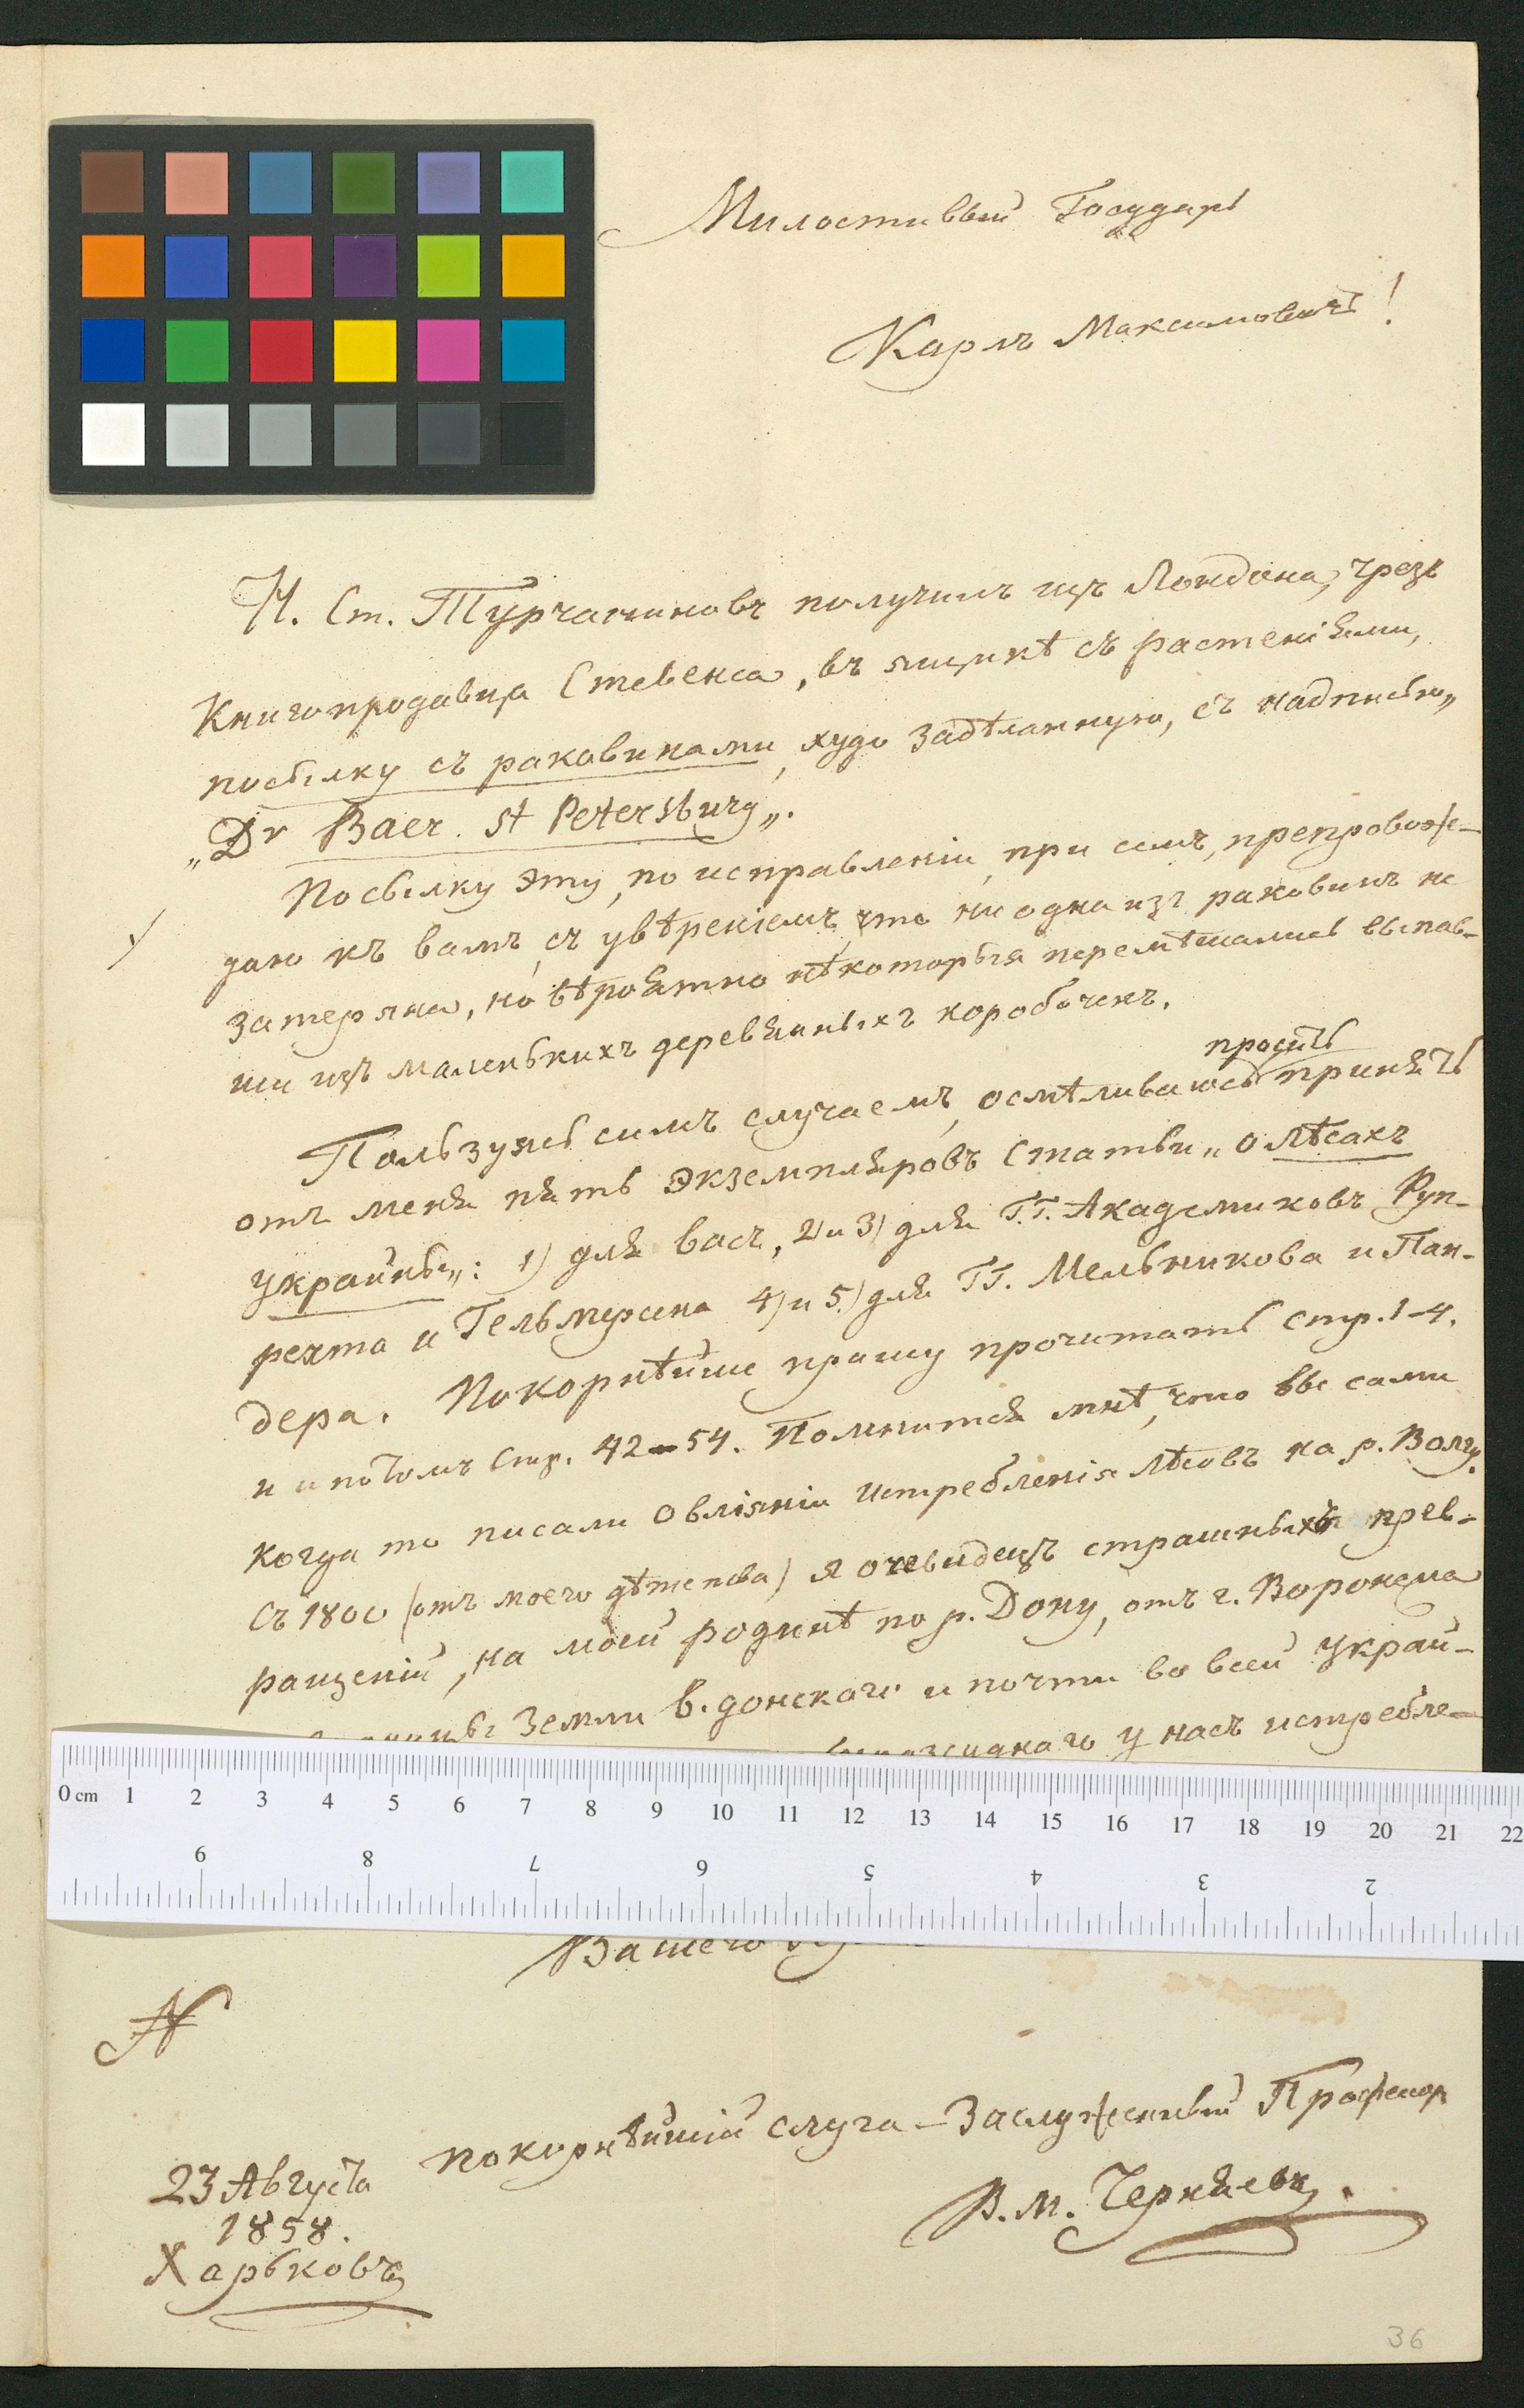 Милостивый Государь
Карлъ Максимовичъ!
Н. Ст. Турчаниновъ получилъ изъ Лондона, чрезъ
Книгопродавца Стевенса, въ ящикѣ съ растеніями,
посылку съ раковинами, худо задѣланную, съ надписью„
„Dr Baer. St Petersburg„.
Посылку эту, по исправленіи, при семъ, препровож-
даю къ вамъ, съ увѣреніемъ, что ни одна изъ раковинъ не
затеряна, но вѣроятно нѣкоторыя перемѣшались выпав-
ши изъ маленькихъ деревянныхъ коробочекъ.
просить
Пользуясь симъ случаемъ, осмѣливаюсь принять
отъ меня пять экземпляровъ Статьи „о лѣсахъ
украйны„: 1) для васъ, 2) и 3) для Г.Г. Академиковъ Руп-
рехта и Гельмерсена 4) и 5.) для ГГ. Мельникова и Пан-
дера. Покорнѣйше прошу прочитать стр. 1-4.
и потомъ Стр. 42-54. Помнится мнѣ, что вы сами
когда то писали о вліяніи истребленія лѣсовъ на р. Волгу.
Съ 1800 (отъ моего дѣтства) я очевидецъ страшныхъ прев-
ращеній, на моей родинѣ по р. Дону, отъ г. Воронежа
Земли в. донскаго и почти во всей Украй-
у насъ истребле-
0 cm 1 2 3 4 5 6 7 8 9 10 11 12 13 14 15 16 17 18 19 20 21 22
9 8 7 6 5 4 3 2
Вашего
покорнѣйшій слуга - Заслуженный Професоръ
В. М. Черняевъ.
23 Августа
1858.
Харьковъ
36